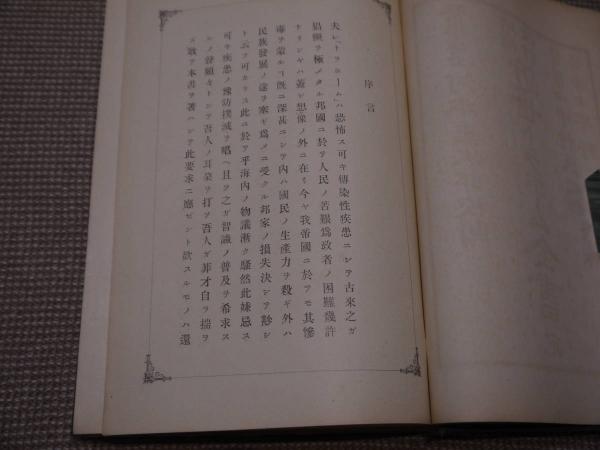 序言
夫レ「トラコーム」ハ恐怖ス可キ傳染性疾患ニシテ古來之ガ
猖獗ヲ極メタル邦國ニ於テ人民ノ苦艱爲政者ノ困難幾許
ナリシヤハ蓋シ想像ノ外ニ在リ今ヤ我帝國ニ於テモ其慘
毒ヲ蒙ルヿ既ニ深甚ニシテ內ハ國民ノ生產力ヲ殺ギ外ハ
民族發展ノ途ヲ塞ギ爲メニ受クル邦家ノ損失決シテ尠シ
ト云フ可カラス此ニ於テ乎海內ノ物議漸ク騷然此嫌忌ス
可キ疾患ノ豫防撲滅ヲ唱ヘ且ツ之ガ智識ノ普及ヲ希求ス
ルノ聲頻々トシテ吾人ノ耳朶ヲ打ツ吾人ガ菲才自ラ揣ラ
ズ敢テ本書ヲ著ハシテ此要求ニ應ゼント欲スルモノハ還